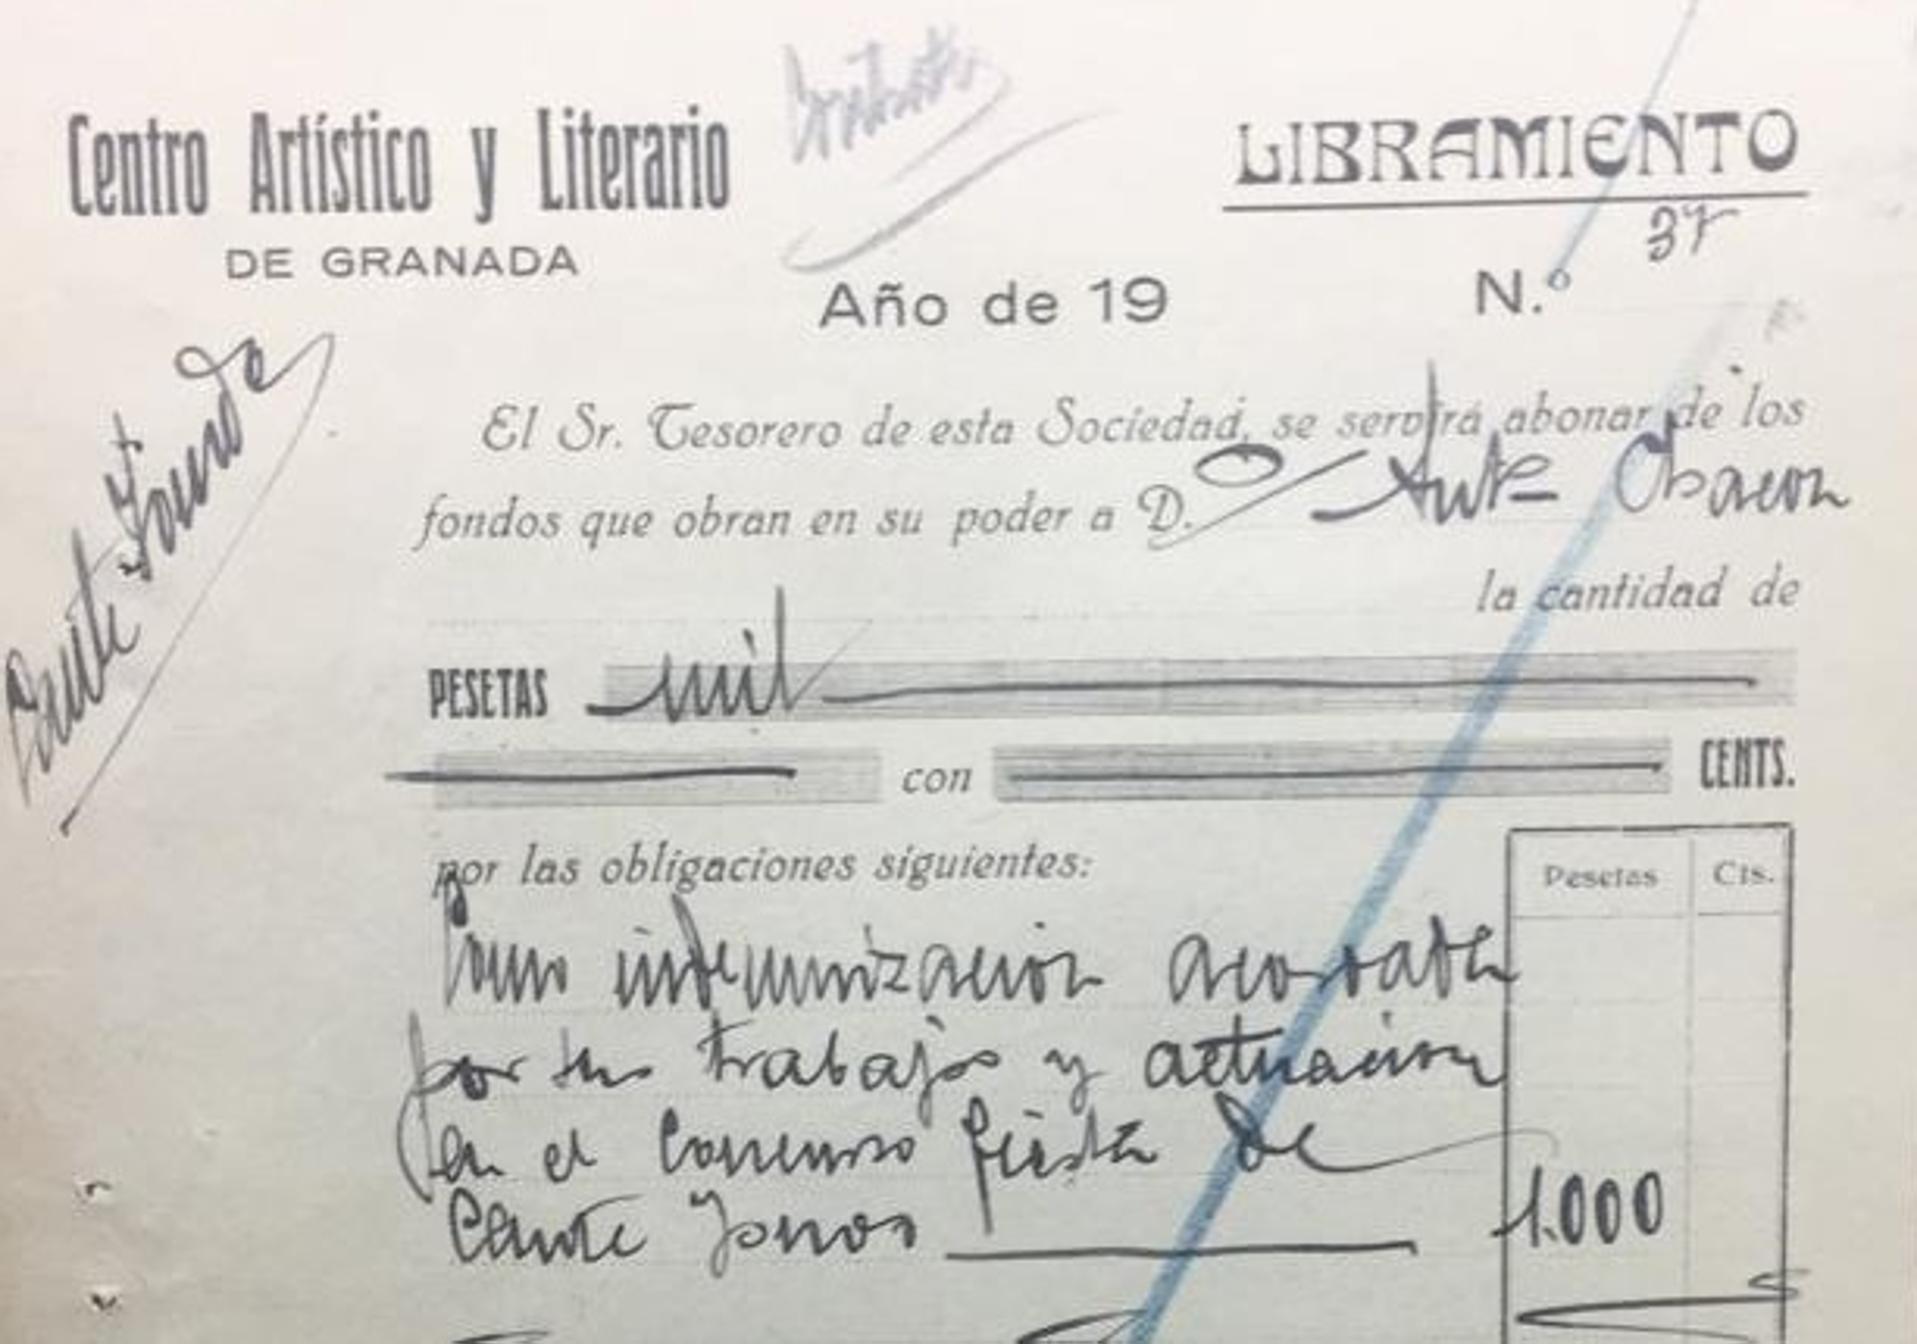 Centro Artístico y Literario
DE GRANADA
LIBRAMIENTO
37
Año de 19
N.º
Cante Jondo
El Sr. Tesorero de esta Sociedad, se servirá abonar de los
fondos que obran en su poder a D. Antº Chacon
la cantidad de
PESETAS mil
con CENTS.
por las obligaciones siguientes:
Pesetas Cts.
Como indemnizacion acordada
por sus trabajos y actuacion
en el Concurso fiesta de
Cante Jondo 1.000